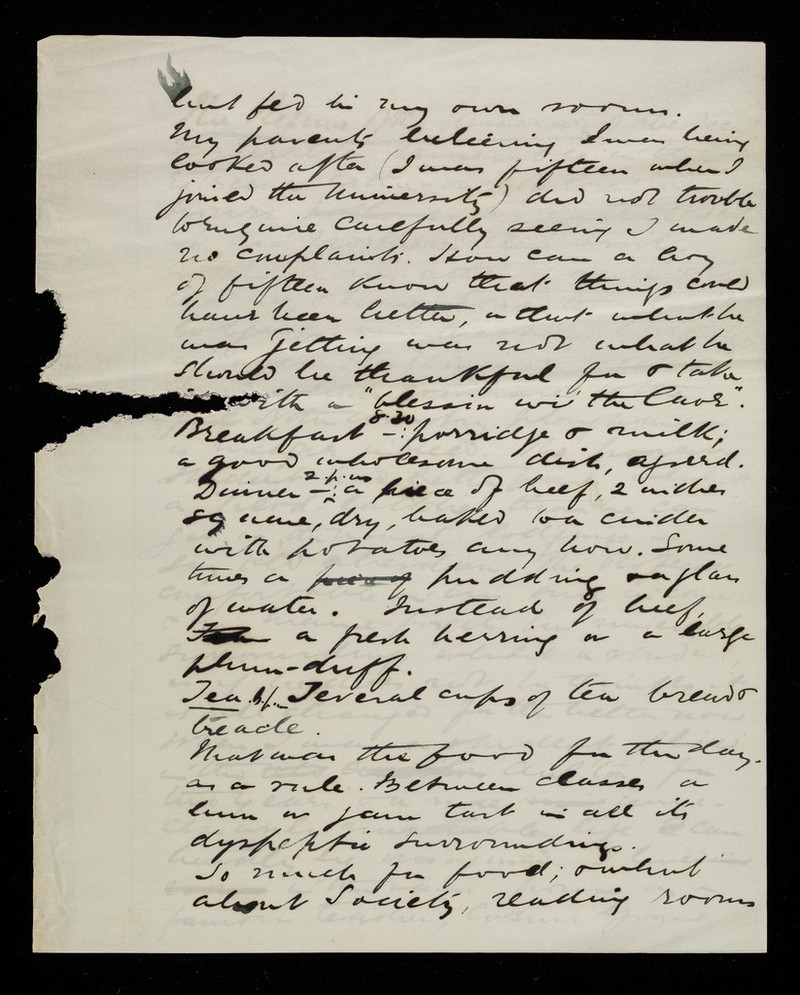 but fed in my own rooms.
My parents believing I was being
looked after (I was fifteen when I
joined the University) did not trouble
to enquire carefully seeing I made
no complaints. How can a boy
of fifteen know that things could
have been better, or that what he
was getting was not what he
should be thankful for & take
with a "blessin wi' the lave".
Breakfast - 8.30: porridge & milk;
a good wholesome dish, agreed.
Dinner - 2 p.m: a piece of beef, 2 inches
square, dry, baked to a cinder
with potatoes any how. Some
times a piece of pudding & a glass
of water. Instead of beef,
a fresh herring or a large
plum-duff.
Tea. Several cups of tea bread &
treacle.
That was the food for the day.
as a rule. Between classes a
bun or jam tart in all its
dyspeptic surroundings.
So much for food; & what
about Society, reading rooms